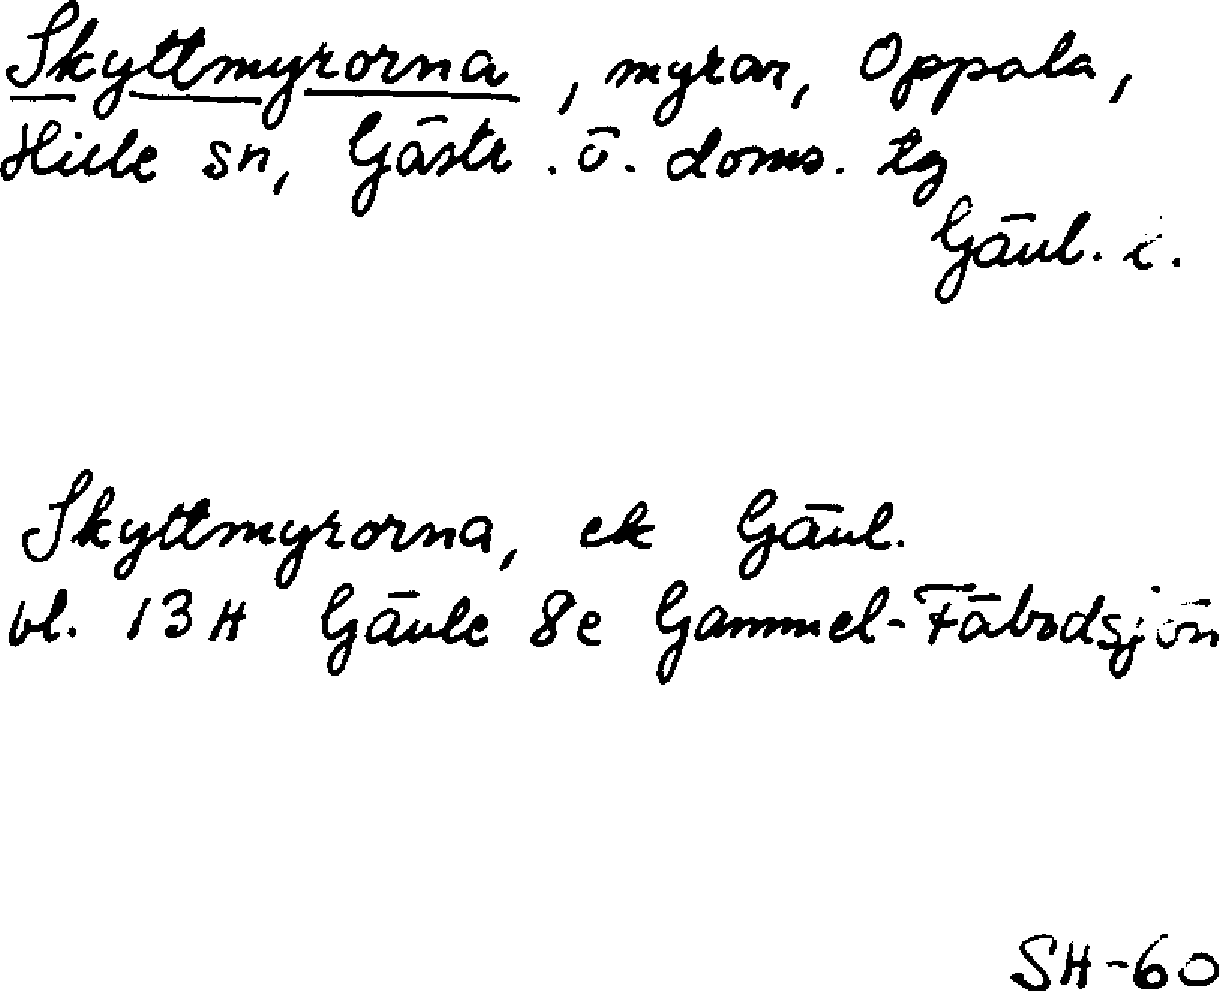 Skyttmyrorna, myrar, Oppala,
Hille sn, Gästr. ö. doms. tg
Gävl. l.
Skyttmyrorna, ek Gävl.
bl. 13H Gävle 8e Gammel-Fäbodsjön
SH-60